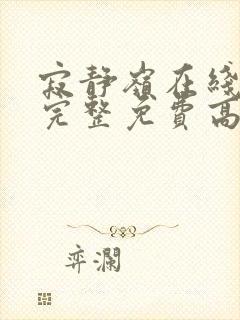 寂静嶺在线
完整免費高
弈澜